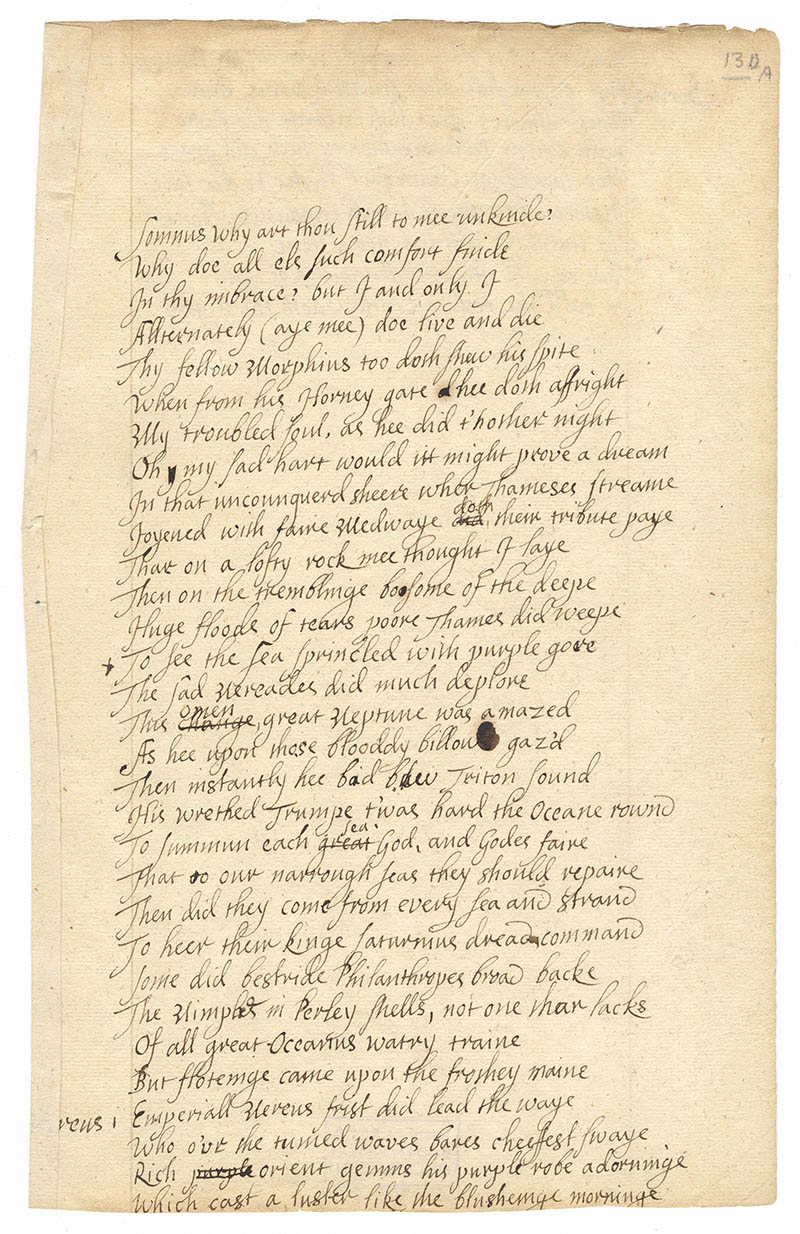 130A
Somnus why art thou still to mee unkinde?
Why doe all els such comfort finde
In thy imbrace? but I and only I
Allternately (aye mee) doe live and die
Thy fellow Morphius too doth shew his spite
When from his Horney gate hee doth affright
My troubled soul, as hee did t'hother night
Oh my sad hart would itt might prove a dream
In that unconnquerd sheere wher Thameses streame
Joyened with faire Medwaye did doth their tribute paye
That on a lofty rock mee thought I laye
Then on the tremblinge boosome of the deepe
Huge floods of tears poore Thames did weepe
To see the sea sprincled with purple gore
The sad Nereades did much deplore
This change omen, great Neptune was amazed
As hee upon those blooddy billows gaz'd
Then instantly hee bid blew Triton sound
His wrethed Trumpe t'was hard the Oceane round
To summun each great sea God, and Godes faire
That to our narrough seas they should repaire
Then did they come from every sea and strand
To heer their kinge Saturnius dread command
Some did bestride Philanthropes broad backe
The Nimphes in Perley shells, not one thar lacks
Of all great Occeanus watry traine
But floteinge came upon the frothey maine
reus Emperiall Nereus frist did lead the waye
Who o'vr the tumed waves bares cheefest swaye
Rich purple orient gemms his purple robe adorninge
Which cast a luster like the blusheinge morninge